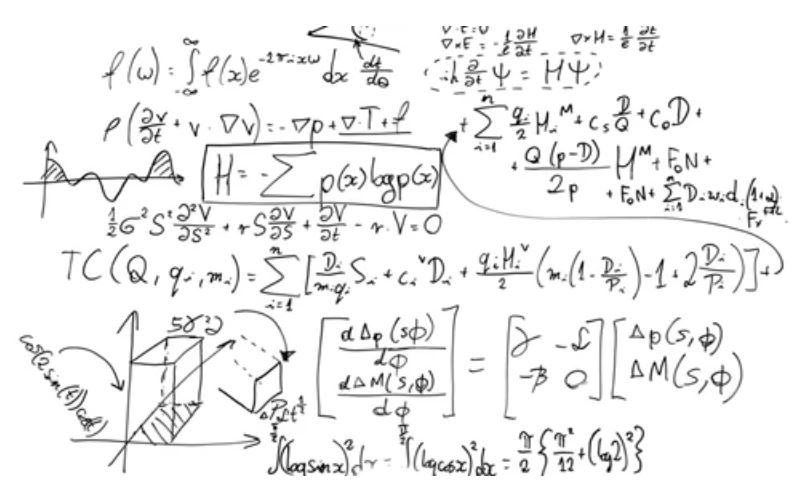 ∇×E = -1/c ∂H/∂t   ∇×H = 1/c ∂E/∂t
f(ω) = ∫_{-∞}^{∞} f(x)e^{-2πixω} dx   dt/dθ   iħ ∂/∂t Ψ = HΨ
ρ(∂v/∂t + v · ∇v) = -∇p + ∇·T + f   + Σ_{i=1}^{n} q_i/2 H_i^M + C_s D/Q + C_o D +
H = -Σ p(x) log p(x)   + Q(p-D)/2p H^M + F_o N +
+ F_o N + Σ_{i=1}^{n} D_i w_i d_i
1/2 σ² S² ∂²V/∂S² + rS ∂V/∂S + ∂V/∂t - r·V = 0
TC(Q, q_i, m_i) = Σ_{i=1}^{n} [D_i/m_i q_i S_i + c_i^v D_i + q_i H_i^v/2 (m_i(1 - D_i/P_i) - 1 + 2 D_i/P_i)] +
cos(2sin(t)), cos(t)
[dΔp(s,ϕ)/dϕ
dΔM(s,ϕ)/dϕ] = [γ -α
-β 0] [Δp(s,ϕ)
ΔM(s,ϕ)]
∫(log sin x)² dx = ∫^{π/2} (log cos x)² dx = π/2 {π²/12 + (log 2)²}